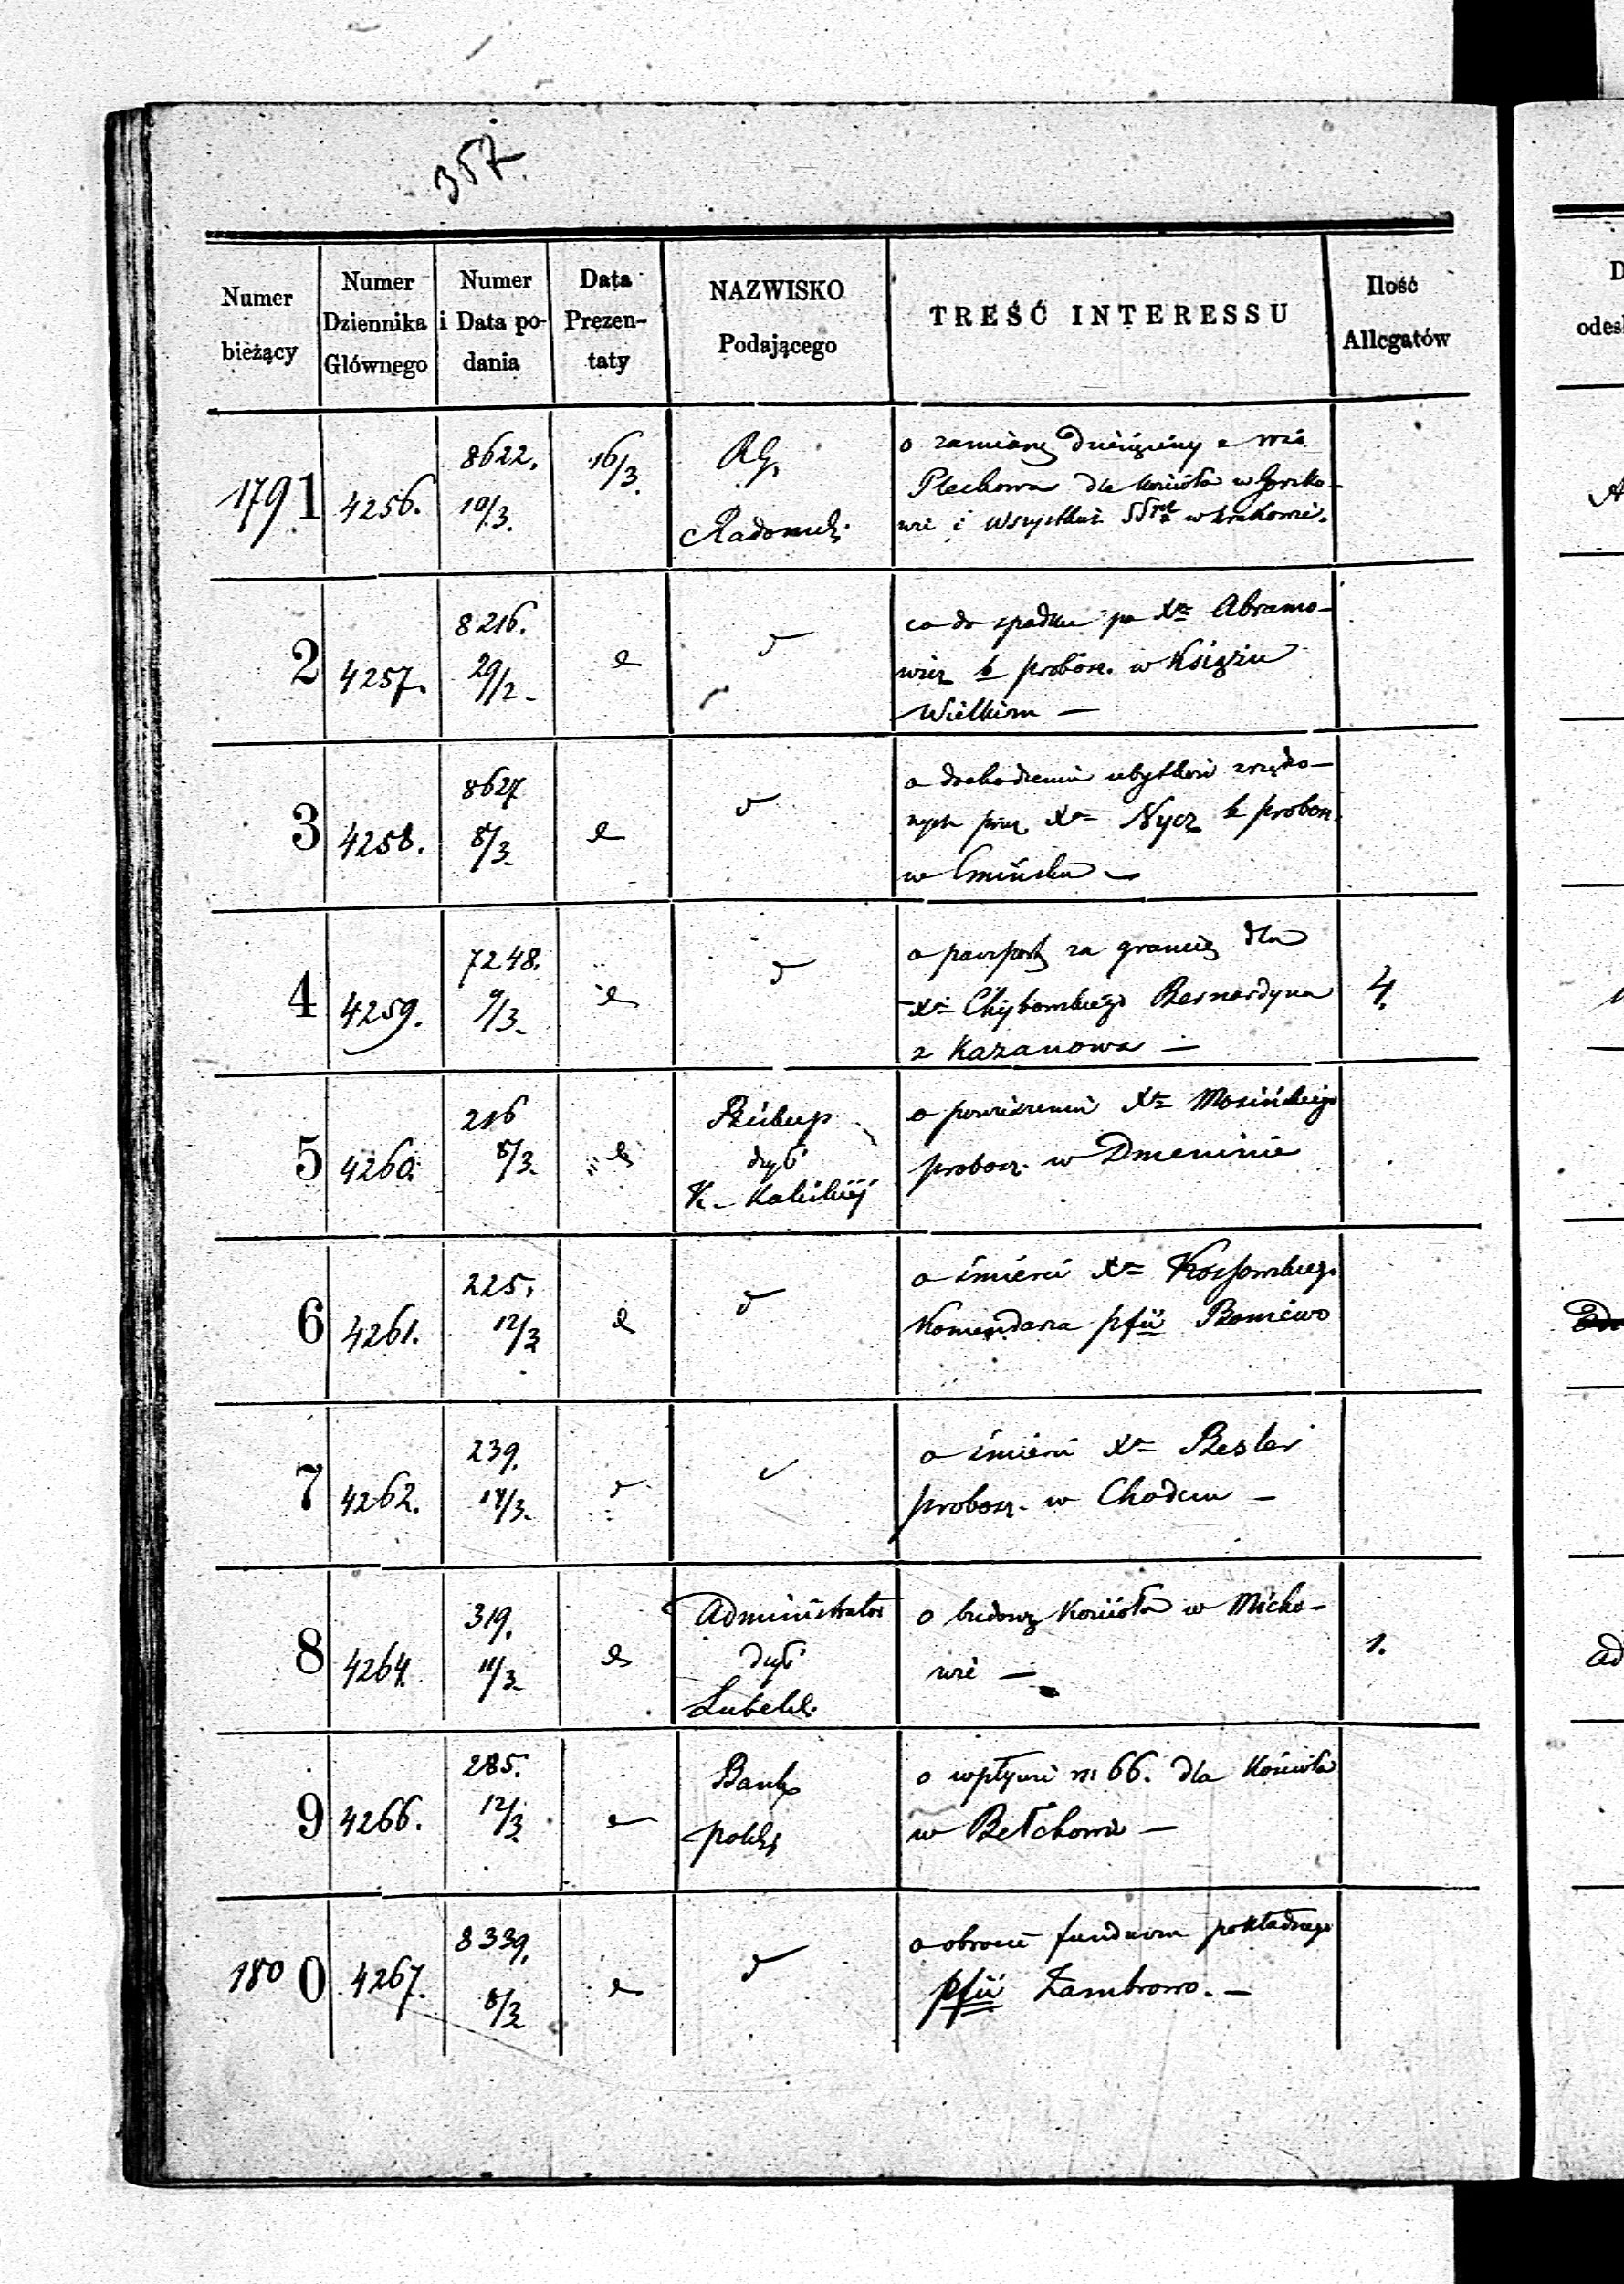 357.
Numer bieżący | Numer Dziennika Głównego | Numer i Data podania | Data Prezentaty | NAZWISKO Podającego | TREŚĆ INTERESSU | Ilość Allegatów
1791 | 4256. | 8622. 10/3. | 16/3. | R.G. Radomsk. | o zamianę dziesięciny z wsi
Plechowa dla kościoła w
wie i Wszystkich SSych w Krakowie.
2 | 4257. | 8216. 29/2. | co do spadku po Xe Abramo-
wicz b probosz. w Książu
Wielkim —
3 | 4258. | 8627 8/3. | o dochodzeniu ubytków zrządzo-
nych przez Xa Nycz b probosz.
w Cmińsku —
4 | 4259. | 7248. 9/3. | o paszport za granicę dla | 4.
Xa Bernardyna
z Kazanowa —
5 | 4260. | 216 8/3. | Biskup dyć K. Kaliskiéj | o Xa Mosińskiego
probosz. w Dmeninie
6 | 4261. | 225. 12/3 | o śmierci Xa Kossowskiego
Komendarza pfii Boniewo
7 | 4262. | 239. 14/3. | o śmierci Xa Besler
probosz. w Chodczu —
8 | 4264. | 319. 11/3. | Administrator dyć Lubelsk. | o budowę Kościoła w Micho- | 1.
wie —
9 | 4266. | 285. 12/3 | Bank polski | o wpływie rs 66. dla Kościoła
w Bełchowie —
1800 | 4267. | 8339. 8/3 | o obrocie funduszu pokładnego
pfii Zambrowo. —